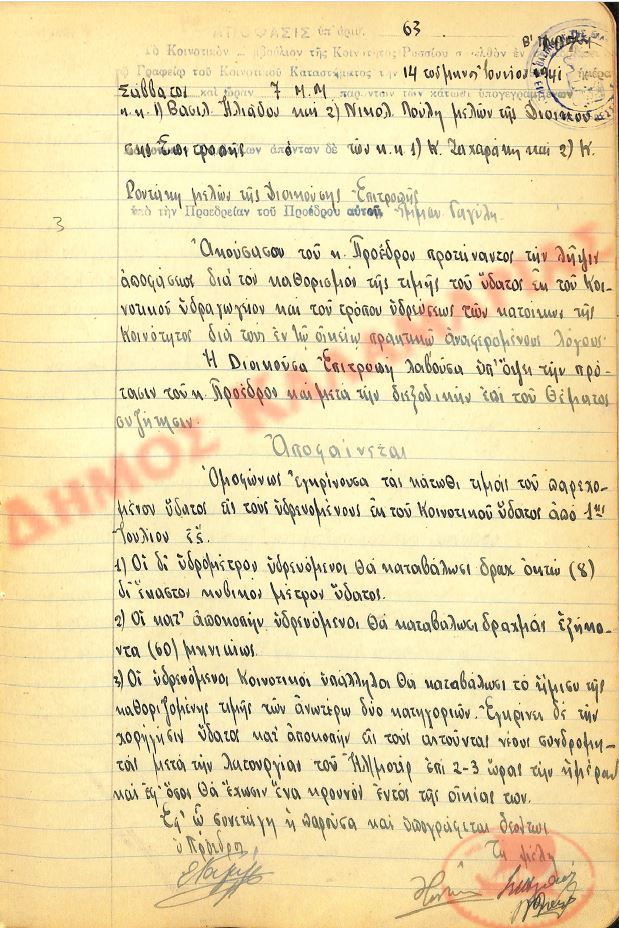 ΑΠΟΦΑΣΙΣ ὑπ' ἀριθ. 63
Τὸ Κοινοτικὸν Συμβούλιον τῆς Κοινότητος Ρυσσίου συνελθὸν ἐν
τῷ Γραφείῳ τοῦ Κοινοτικοῦ Καταστήματος τὴν 14 τοῦ μηνὸς Ἰουνίου 1941 ἡμέρα
Σάββατον καὶ ὥραν 7 μ.μ παρόντων τῶν κάτωθι ὑπογεγραμμένων
κ.κ 1) Βασιλ. Ηλιάδου και 2) Νικολ. Πούλη μελῶν τῆς Διοικού
σης Επιτροπῆς ἀπόντων δὲ τῶν κ.κ 1) Κ. Ζαχαράκη και 2) Κ.
Ροντάκη μελῶν τῆς Διοικούσης Επιτροπῆς
ὑπὸ τὴν Προεδρείαν τοῦ Προέδρου αὐτοῦ Γαγύλη
3
Ακούσασα τοῦ κ. Προέδρου προτείναντος τὴν λῆψιν
ἀποφάσεως διὰ τὸν καθορισμὸν τῆς τιμῆς τοῦ ὕδατος ἐκ τοῦ Κοι-
νοτικοῦ ὑδραγωγείου και τοῦ τρόπου ὑδρεύσεως τῶν κατοίκων τῆς
Κοινότητος διὰ τοὺς ἐν τῷ οἰκείῳ πρακτικῷ ἀναφερομένους λόγους.
Ἡ Διοικοῦσα Επιτροπὴ λαβοῦσα ὑπ' ὄψει τὴν πρό-
τασιν τοῦ κ. Προέδρου και μετὰ τὴν διεξοδικὴν ἐπὶ τοῦ θέματος
συζήτησιν.
Αποφαίνεται
Ὁμοφώνως ἐγκρίνουσα τὰς κάτωθι τιμὰς τοῦ παρεχο-
μένου ὕδατος εἰς τοὺς ὑδρευομένους ἐκ τοῦ Κοινοτικοῦ ὕδατος ἀπὸ 1ης
Ἰουλίου ἐ.ἔ.
1) Οἱ δι' ὑδρομέτρου ὑδρευόμενοι θὰ καταβάλωσι δραχ. ὀκτώ (8)
δι' ἕκαστον κυβικὸν μέτρον ὕδατος.
2) Οἱ κατ' ἀποκοπὴν ὑδρευόμενοι θὰ καταβάλωσι δραχμὰς ἑξήκο-
ντα (60) μηνιαίως.
3) Οἱ ὑδρευόμενοι Κοινοτικοὶ ὑπάλληλοι θὰ καταβάλωσι τὸ ἥμισυ τῆς
καθοριζομένης τιμῆς τῶν ἀνωτέρω δύο κατηγοριῶν. Εγκρίνει δὲ τὴν
χορήγησιν ὕδατος κατ' ἀποκοπὴν εἰς τοὺς αἰτοῦντας νέους συνδρομη-
τὰς μετὰ τὴν λειτουργίαν τοῦ Ηλμοτὲρ ἐπὶ 2-3 ὥρας τὴν ἡμέραν
καὶ ἐφ' ὅσον θὰ ἔχωσιν ἕνα κρουνὸν ἐντὸς τῆς οἰκίας των.
Ἐφ' ᾧ συνετάγη ἡ παροῦσα καὶ ὑπογράφεται δεόντως
ὁ Πρόεδρος Τὰ μέλη
ΔΗΜΟΣ ΚΑΛΑΜΑΡΙΑΣ